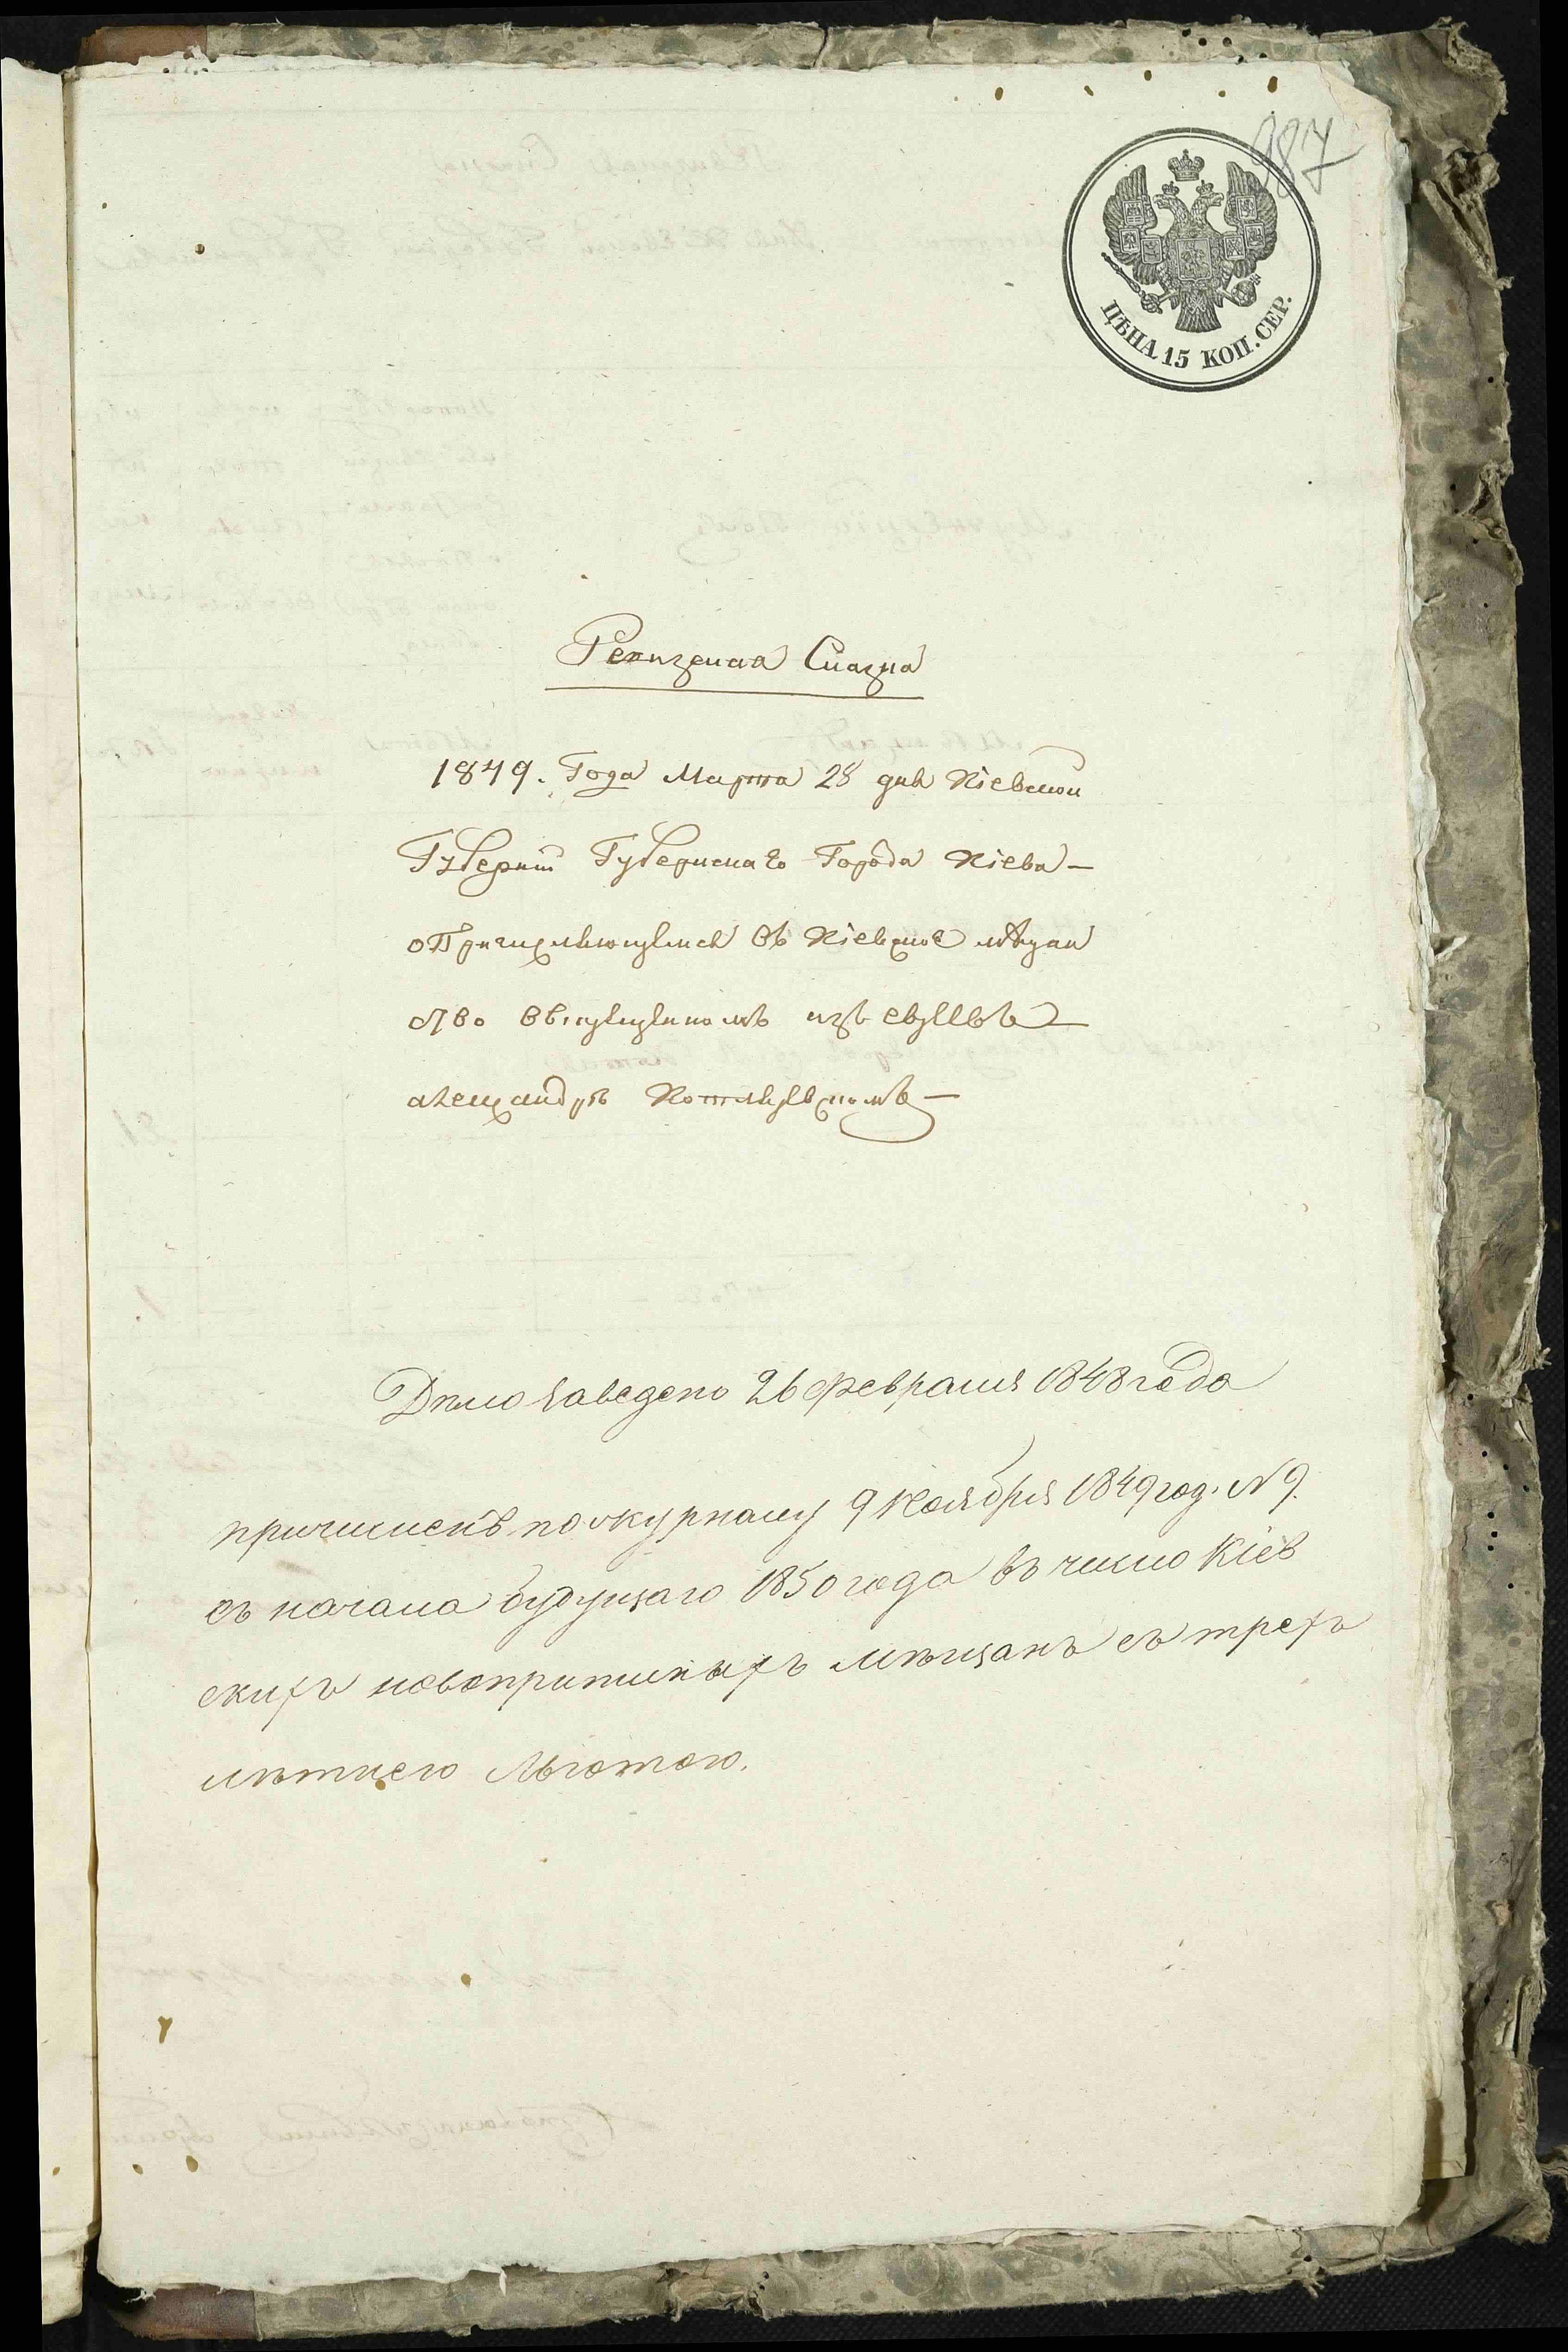 987
ЦѢНА 15 КОП. СЕР.
Ревизская Сказка
1849. Года Марта 28 дня Кіевской
Губерніи Губернскаго Города Кіева —
о Причисляющемся въ Кіевское мѣщан
ство
Александрѣ Котляревскомъ —
Дѣло заведено 26 февраля 1848 года
причисленъ по журналу 9 Ноября 1849 год. N 9.
съ начала будущаго 1850 года въ число Кіев
скихъ мѣщанъ съ трехъ
лѣтнею льготою.